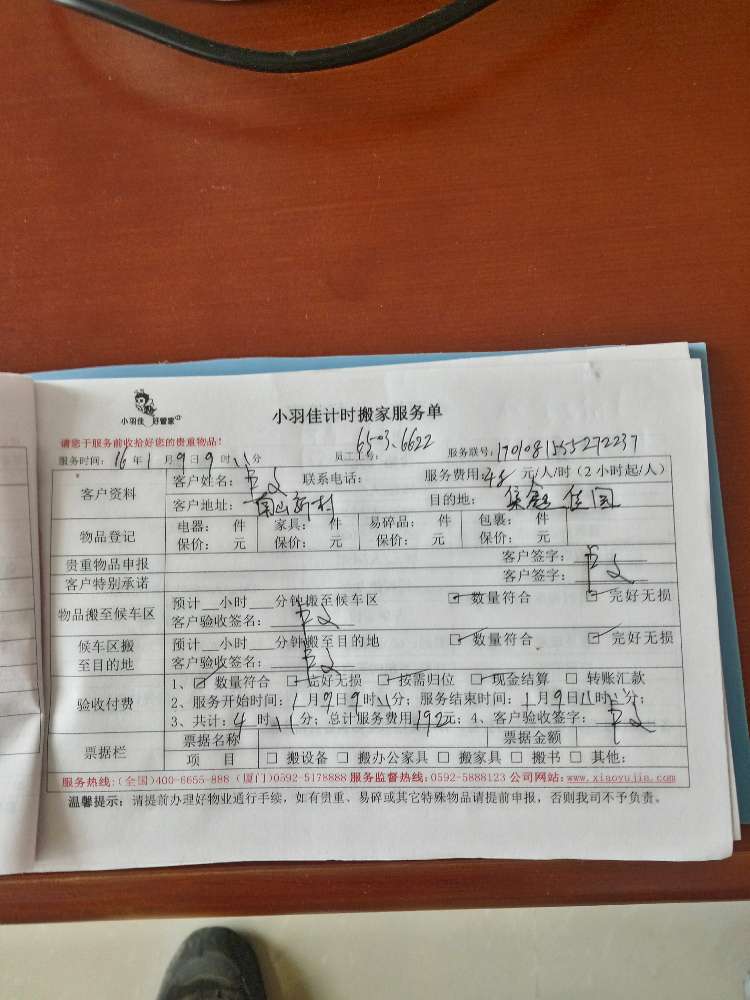 小羽佳 好管家
小羽佳计时搬家服务单
请您于服务前收拾好您的贵重物品!
服务时间: 16 年 1 月 9 日 9 时 分 员工工号: 6503、6622 服务联号: 1701081555272237
客户资料 客户姓名: 联系电话: 服务费用: 48 元/人/时(2小时起/人)
客户地址: 南山新村 目的地: 佳园
物品登记 电器: 件 家具: 件 易碎品: 件 包裹: 件
保价: 元 保价: 元 保价: 元 保价: 元
贵重物品申报 客户签字:
客户特别承诺 客户签字:
物品搬至候车区 预计__小时__分钟搬至候车区 ☑ 数量符合 ☑ 完好无损
客户验收签名:
候车区搬至目的地 预计__小时__分钟搬至目的地 ☑ 数量符合 ☑ 完好无损
客户验收签名:
验收付费 1、☑ 数量符合 ☑ 完好无损 ☑ 按需归位 ☑ 现金结算 ☐ 转账汇款
2、服务开始时间: 1 月 9 日 9 时 分; 服务结束时间: 1 月 9 日 11 时 分;
3、共计: 4 时 分; 总计服务费用 192 元; 4、客户验收签字:
票据栏 票据名称 票据金额
项 目 ☐ 搬设备 ☐ 搬办公家具 ☐ 搬家具 ☐ 搬书 ☐ 其他:
服务热线:(全国)400-6655-888 (厦门)0592-5178888 服务监督热线:0592-5888123 公司网站:www.xiaoyujia.com
温馨提示: 请提前办理好物业通行手续, 如有贵重、易碎或其它特殊物品请提前申报, 否则我司不予负责。